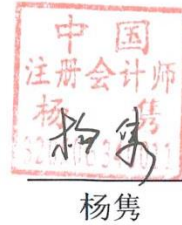 中国
注册会计师
杨隽
杨隽
杨隽